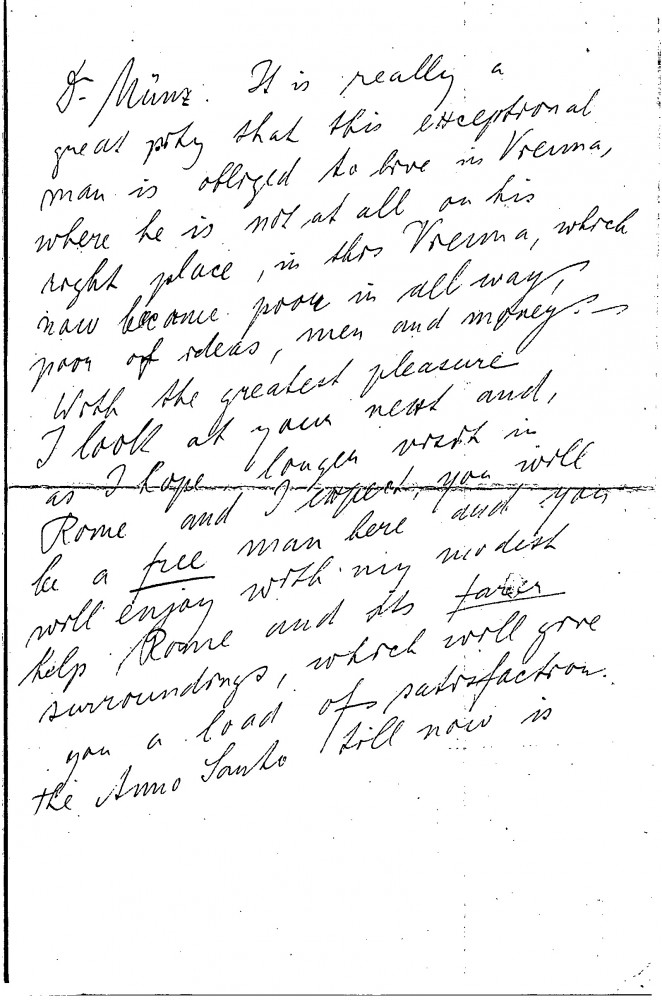 Dr Münz. It is really a
great pity that this exceptional
man is obliged to live in Vienna,
where he is not at all on his
right place, in this Vienna, which
now became poor in all way,
poor of ideas, men and money. –
With the greatest pleasure
I look at your next and,
as I hope longer visit in
Rome and I expect, you will
be a free man here and you
will enjoy with my modest
help Rome and its farer
surroundings, which will give
you a load of satisfaction.
the Anno Santo till now is